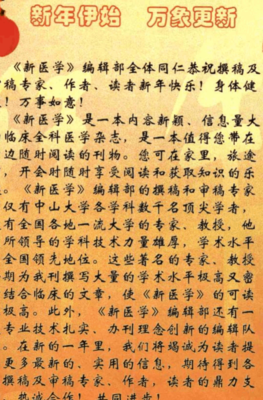 新年伊始 万象更新
《新医学》编辑部全体同仁恭祝撰稿及
稿专家、作者、读者新年快乐!身体健
!万事如意!
《新医学》是一本内容新颖、信息量大
临床全科医学杂志,是一本值得您带在
边随时阅读的刊物。您可在家里,旅途
,开会时随时享受阅读和获取知识的乐
。《新医学》编辑部的撰稿和审稿专家
仅有中山大学各学科数千名顶尖学者,
有全国各地一流大学的专家、教授,他
所领导的学科技术力量雄厚,学术水平
全国领先地位。这些著名的专家、教授
期为我刊撰写大量的学术水平极高又密
结合临床的文章,使《新医学》的可读
极高。此外,《新医学》编辑部还有一
专业技术扎实、办刊理念创新的编辑队
。在新的一年里,我们将竭诚为读者提
更多最新的、实用的信息,期待得到各
撰稿及审稿专家、作者,读者的鼎力支
。热诚合作!共同进步!